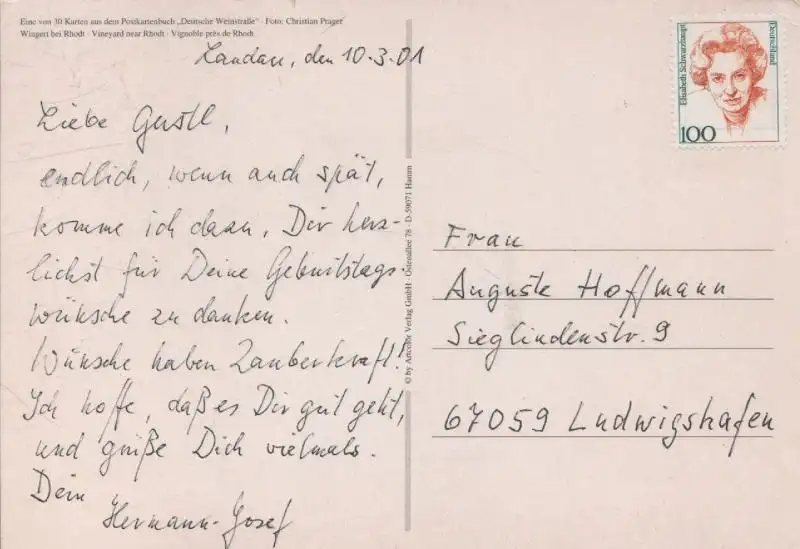 Eine von 30 Karten aus dem Postkartenbuch „Deutsche Weinstraße“ · Foto: Christian Prager
Wingert bei Rhodt · Vineyard near Rhodt · Vignoble près de Rhodt
Landau, den 10.3.01
Liebe Gustl,
endlich, wenn auch spät,
komme ich dazu, Dir herz-
lichst für Deine Geburtstags-
wünsche zu danken.
Wünsche haben Zauberkraft!
Ich hoffe, daß es Dir gut geht,
und grüße Dich vielmals.
Dein
Hermann-Josef
© by Artcolor Verlag GmbH · Ostenallee 78 · D-59071 Hamm
Elisabeth Schwarzhaupt
Deutschland
100
Frau
Auguste Hoffmann
Sieglindenstr. 9
67059 Ludwigshafen